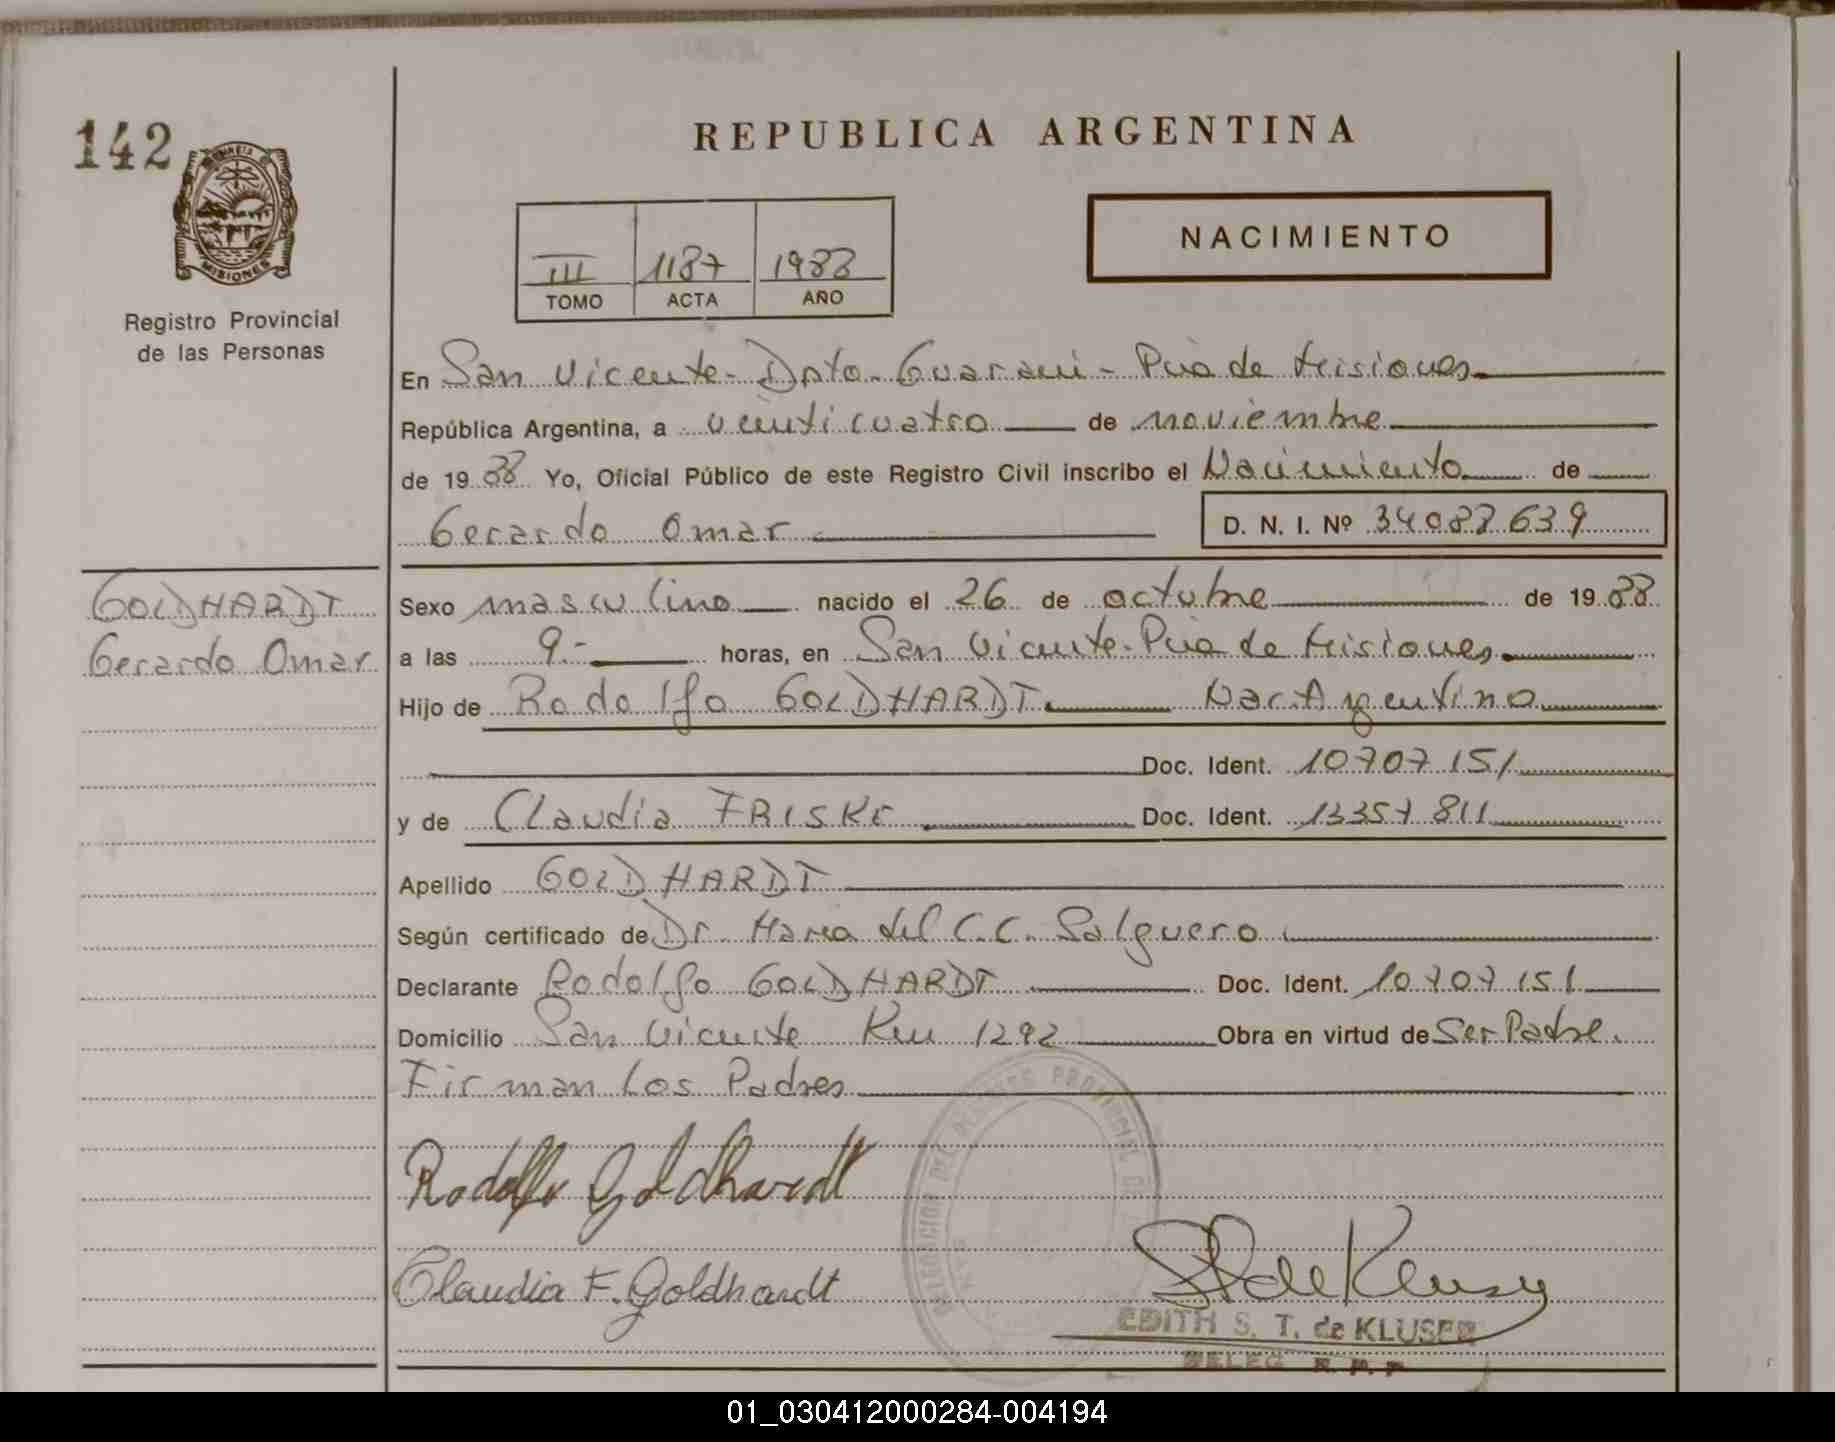 142
REPUBLICA ARGENTINA
NACIMIENTO
III 1187 1988
TOMO ACTA AÑO
MISIONES
Registro Provincial
de las Personas
En San Vicente - Dpto. Guaraní - Pcia de Misiones
República Argentina, a veinticuatro de noviembre
de 1988 Yo, Oficial Público de este Registro Civil inscribo el Nacimiento de
Gerardo Omar D. N. I. Nº 34088639
GOLDHARDT
Gerardo Omar
Sexo masculino nacido el 26 de octubre de 1988
a las 9.- horas, en San Vicente - Pcia de Misiones
Hijo de Rodolfo GOLDHARDT Nac. Argentino
Doc. Ident. 10707151
y de Claudia FRISKE Doc. Ident. 13357811
Apellido GOLDHARDT
Según certificado de Dr. María del C. C. Salguero
Declarante Rodolfo GOLDHARDT Doc. Ident. 10707151
Domicilio San Vicente Km 1292 Obra en virtud de Ser Padre.
Firman Los Padres
Rodolfo Goldhardt
Claudia F. Goldhardt
EDITH S. T. de KLUSER
DELEG. R. P. P.
01_030412000284-004194